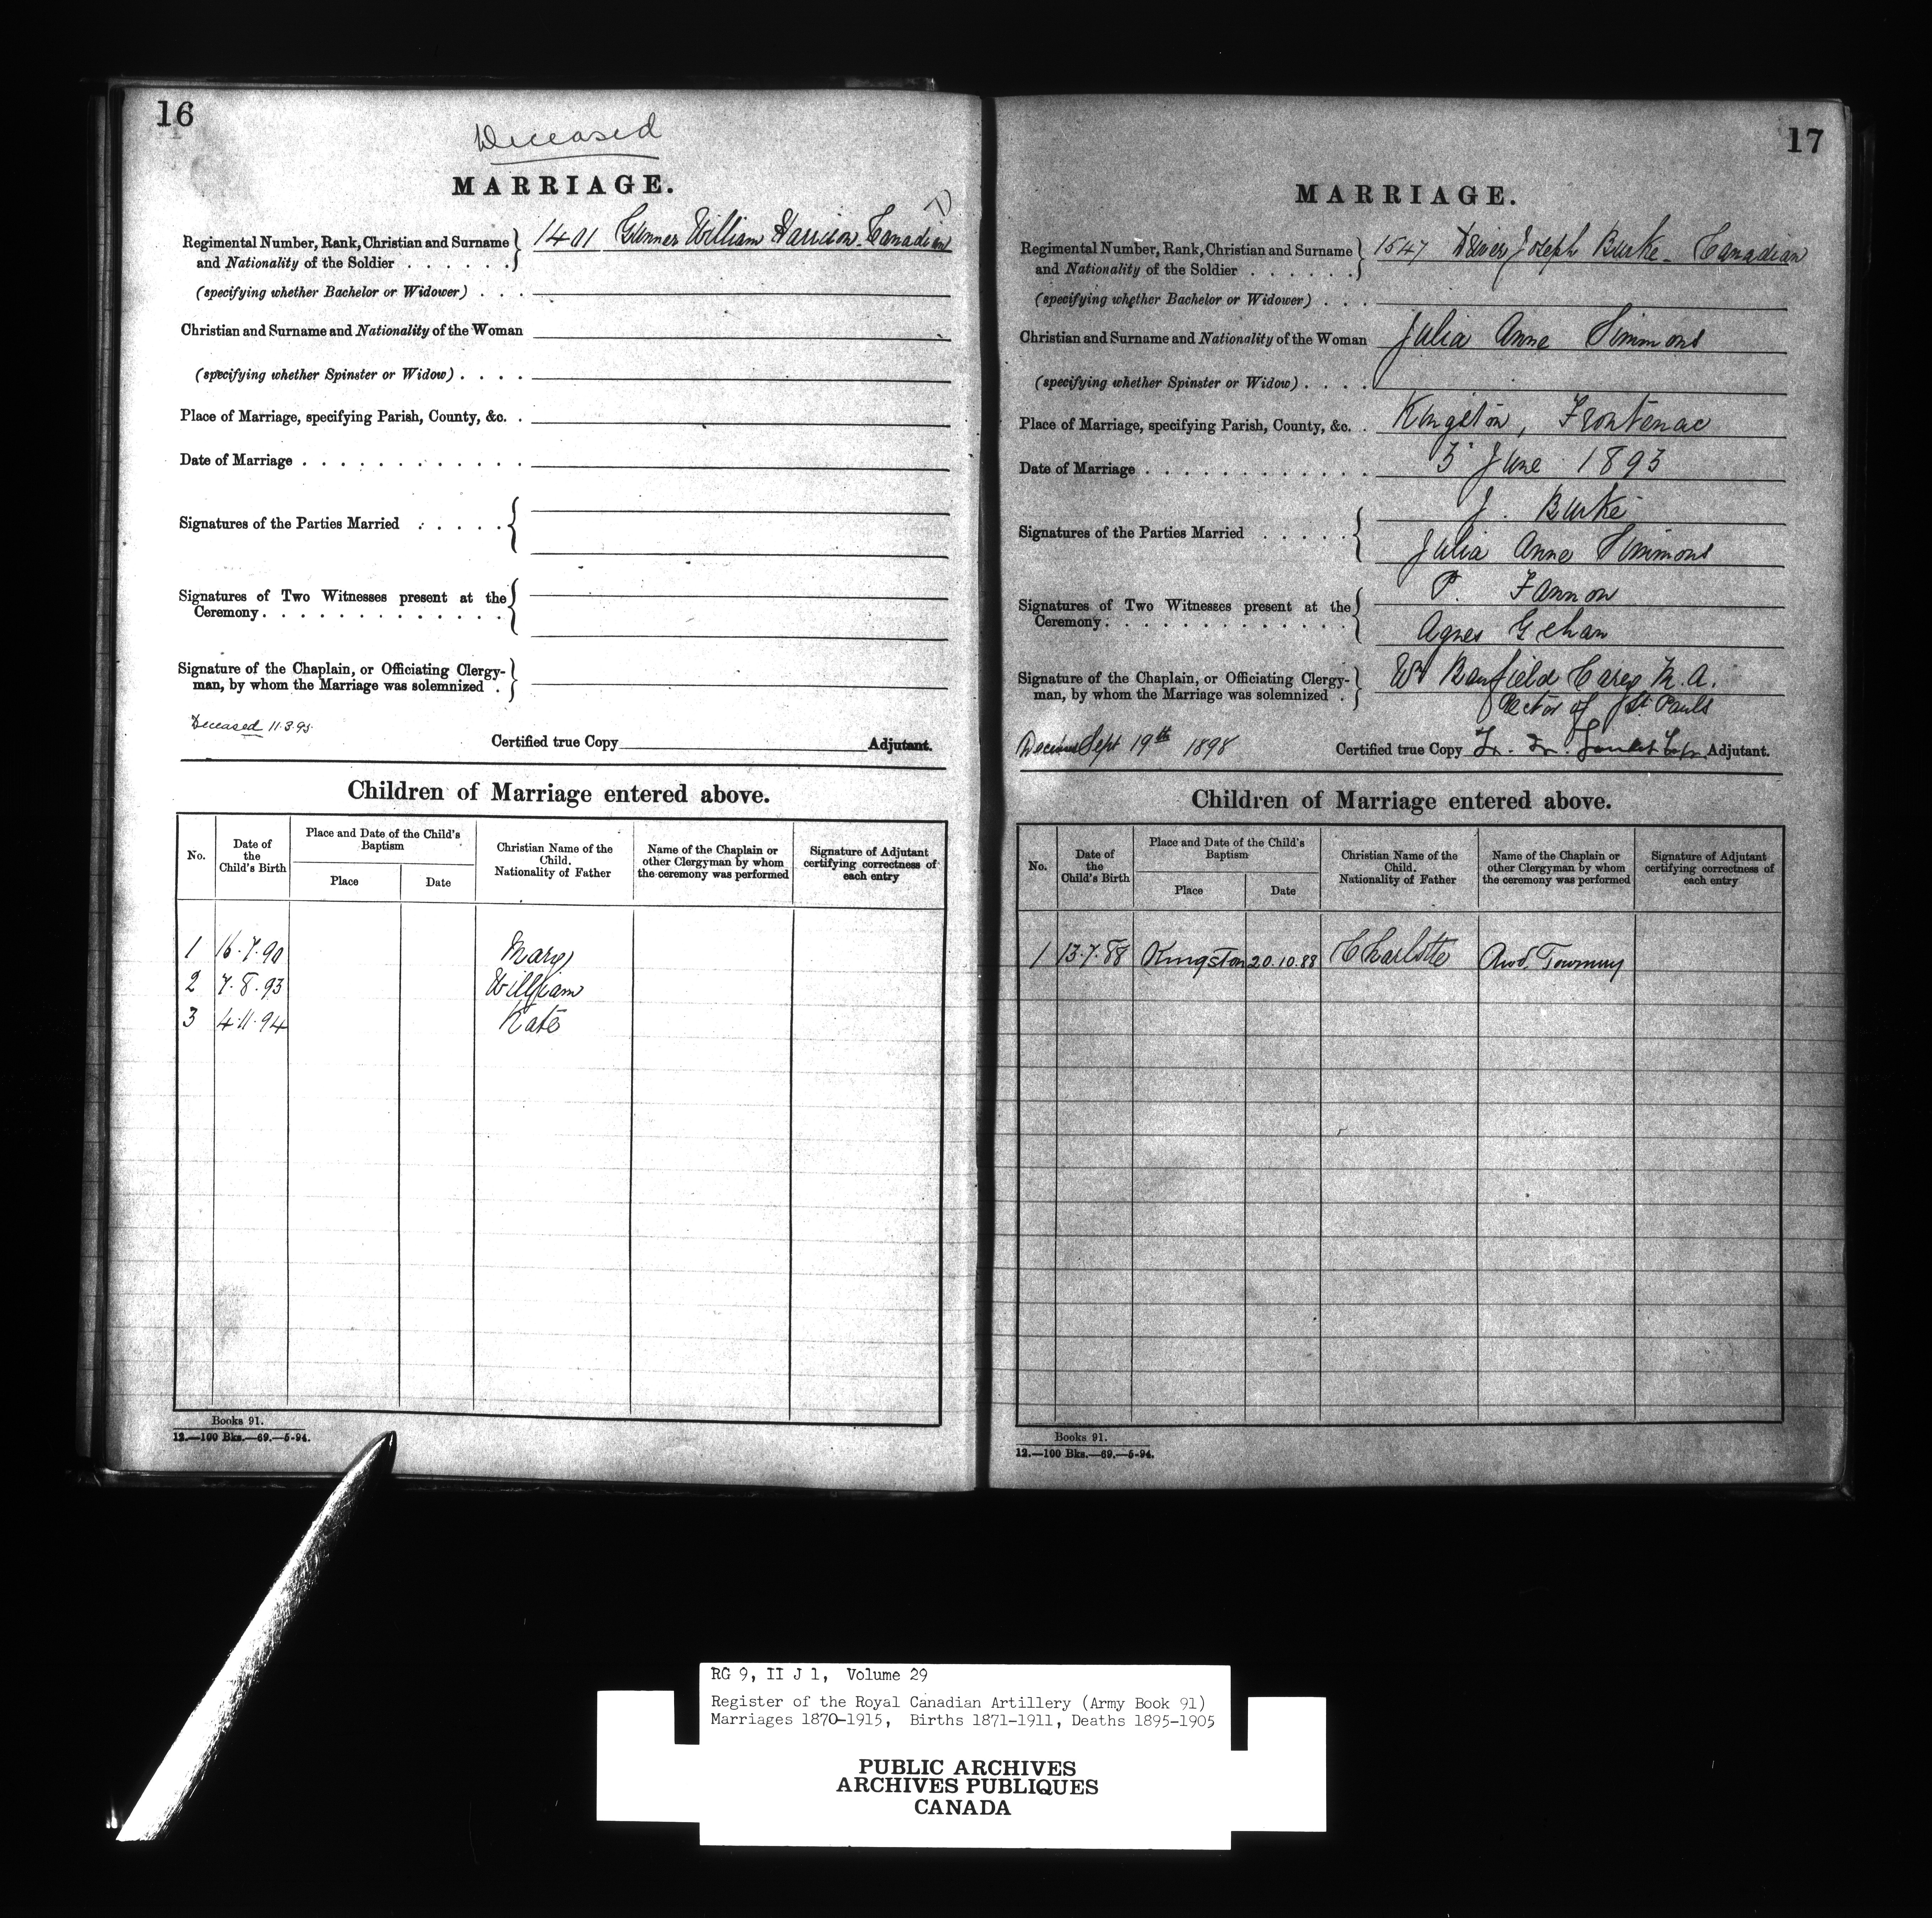 16
Deceased
MARRIAGE.
Regimental Number, Rank, Christian and Surname and Nationality of the Soldier . . . . . . 1401 Gunner William Harrison. Canadian
(specifying whether Bachelor or Widower) . . .
Christian and Surname and Nationality of the Woman
(specifying whether Spinster or Widow) . . . .
Place of Marriage, specifying Parish, County, &c. .
Date of Marriage . . . . . . . . . . . .
Signatures of the Parties Married . . . . .
Signatures of Two Witnesses present at the
Ceremony . . . . . . . . . . . . .
Signature of the Chaplain, or Officiating Clergy-
man, by whom the Marriage was solemnized .
Deceased 11.3.95.
Certified true Copy Adjutant.
Children of Marriage entered above.
No.
Date of the Child's Birth
Place and Date of the Child's Baptism
Place
Date
Christian Name of the Child. Nationality of Father
Name of the Chaplain or other Clergyman by whom the ceremony was performed
Signature of Adjutant certifying correctness of each entry
1 16.7.90 Mary
2 7.8.93 William
3 4.11.94 Kate
Books 91.
12.—100 Bks.—69.—5-94.
17
MARRIAGE.
Regimental Number, Rank, Christian and Surname and Nationality of the Soldier . . . . . . 1547 Driver Joseph Burke - Canadian
(specifying whether Bachelor or Widower) . . .
Christian and Surname and Nationality of the Woman Julia Anne Simmons
(specifying whether Spinster or Widow) . . . .
Place of Marriage, specifying Parish, County, &c. . Kingston, Frontenac
Date of Marriage . . . . . . . . . . . . 3 June 1893
Signatures of the Parties Married . . . . . J. Burke
Julia Anne Simmons
Signatures of Two Witnesses present at the P. Fannon
Ceremony . . . . . . . . . . . . . Agnes Gehan
Signature of the Chaplain, or Officiating Clergy- Wm Banfield Carey M.A.
man, by whom the Marriage was solemnized . Rector of St. Pauls
Sept 19th 1898
Certified true Copy Adjutant.
Children of Marriage entered above.
No.
Date of the Child's Birth
Place and Date of the Child's Baptism
Place
Date
Christian Name of the Child. Nationality of Father
Name of the Chaplain or other Clergyman by whom the ceremony was performed
Signature of Adjutant certifying correctness of each entry
1 13.7.88 Kingston 20.10.88 Charlotte
Books 91.
12.—100 Bks.—69.—5-94.
RG 9, II J 1, Volume 29
Register of the Royal Canadian Artillery (Army Book 91)
Marriages 1870-1915, Births 1871-1911, Deaths 1895-1905
PUBLIC ARCHIVES
ARCHIVES PUBLIQUES
CANADA